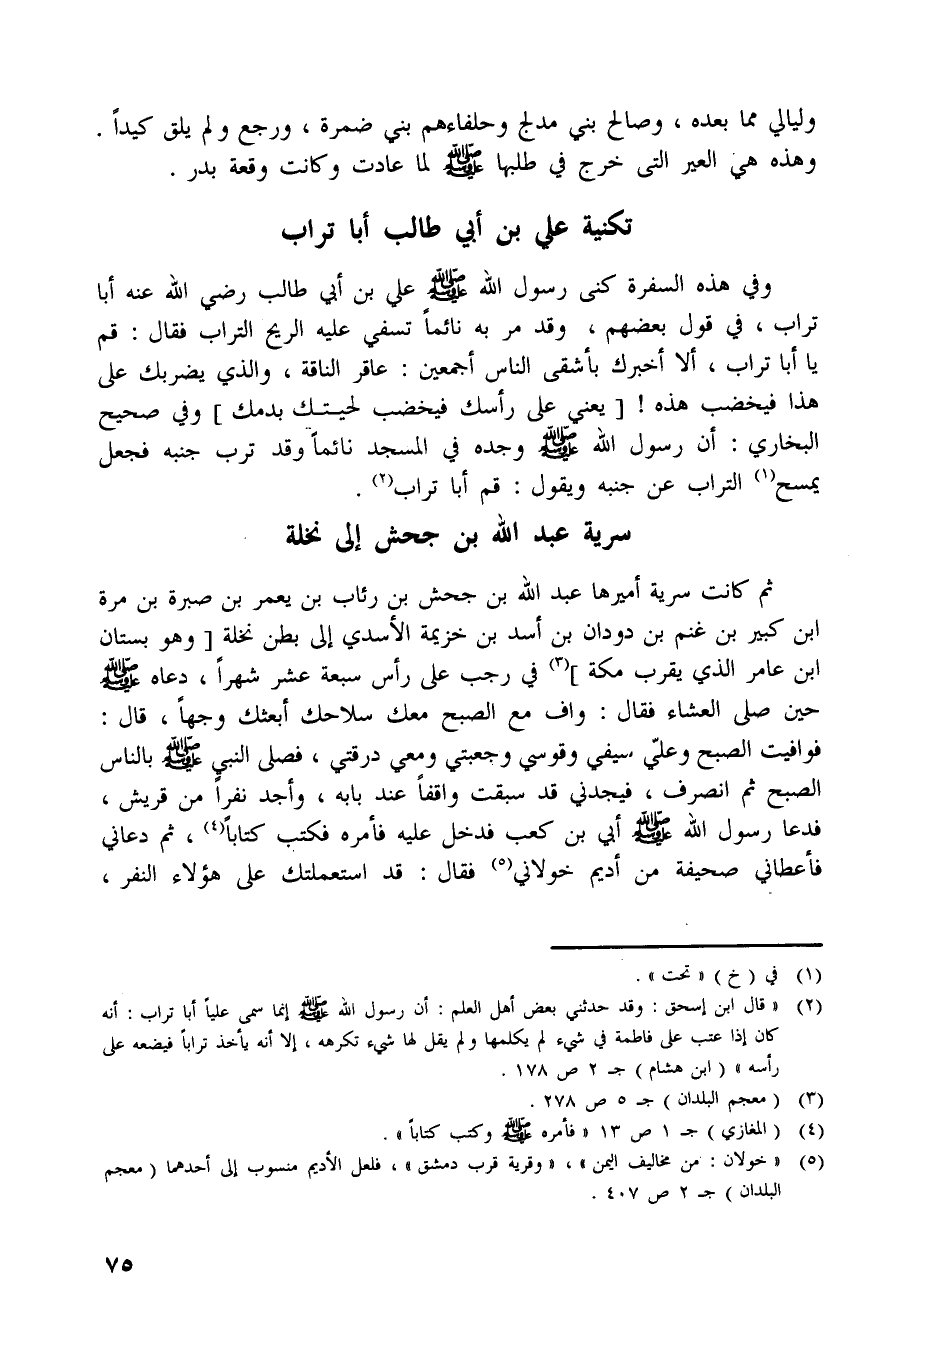 وليالي مما بعده ، وصالح بني مدلج وحلفاءهم بني ضمرة ، ورجع ولم يلق كيداً .
وهذه هي العير التى خرج في طلبها ﷺ لما عادت وكانت وقعة بدر .
تكنية علي بن أبي طالب أبا تراب
وفي هذه السفرة كنى رسول الله ﷺ علي بن أبي طالب رضي الله عنه أبا
تراب ، في قول بعضهم ، وقد مر به نائماً تسفي عليه الريح التراب فقال : قم
يا أبا تراب ، ألا أخبرك بأشقى الناس أجمعين : عاقر الناقة ، والذي يضربك على
هذا فيخضب هذه ! [ يعني على رأسك فيخضب لحيتك بدمك ] وفي صحيح
البخاري : أن رسول الله ﷺ وجده في المسجد نائماً وقد ترب جنبه فجعل
يمسح(١) التراب عن جنبه ويقول : قم أبا تراب(٢) .
سرية عبد الله بن جحش إلى نخلة
ثم كانت سرية أميرها عبد الله بن جحش بن رئاب بن يعمر بن صبرة بن مرة
ابن كبير بن غنم بن دودان بن أسد بن خزيمة الأسدي إلى بطن نخلة [ وهو بستان
ابن عامر الذي يقرب مكة ](٣) في رجب على رأس سبعة عشر شهراً ، دعاه ﷺ
حين صلى العشاء فقال : واف مع الصبح معك سلاحك أبعثك وجهاً ، قال :
فوافيت الصبح وعليّ سيفي وقوسي وجعبتي ومعي درقتي ، فصلى النبي ﷺ بالناس
الصبح ثم انصرف ، فيجدني قد سبقت واقفاً عند بابه ، وأجد نفراً من قريش ،
فدعا رسول الله ﷺ أبي بن كعب فدخل عليه فأمره فكتب كتاباً(٤) ، ثم دعاني
فأعطاني صحيفة من أديم خولاني(٥) فقال : قد استعملتك على هؤلاء النفر ،
(١) في ( خ ) « تحت » .
(٢) « قال ابن إسحق : وقد حدثني بعض أهل العلم : أن رسول الله ﷺ إنما سمى علياً أبا تراب : أنه
كان إذا عتب على فاطمة في شيء لم يكلمها ولم يقل لها شيء تكرهه ، إلا أنه يأخذ تراباً فيضعه على
رأسه » ( ابن هشام ) جـ ٢ ص ١٧٨ .
(٣) ( معجم البلدان ) جـ ٥ ص ٢٧٨ .
(٤) ( المغازي ) جـ ١ ص ١٣ « فأمره ﷺ وكتب كتاباً » .
(٥) « خولان : من مخاليف اليمن » ، « وقرية قرب دمشق » ، فلعل الأديم منسوب إلى أحدهما ( معجم
البلدان ) جـ ٢ ص ٤٠٧ .
٧٥